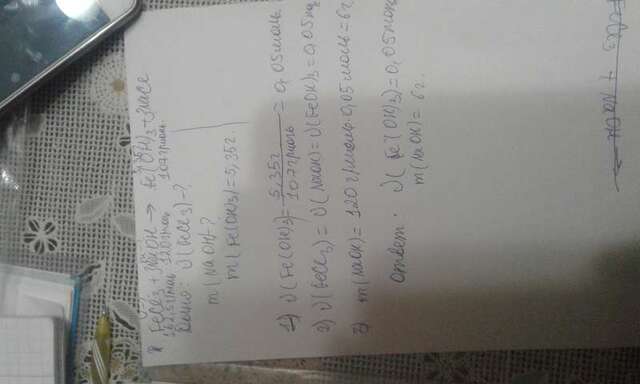 FeCl3 + 3NaOH → Fe(OH)3 + 3NaCl
162,5 г/моль 120 г/моль 107 г/моль
Дано: ν(FeCl3) - ?
m(NaOH - ?
m(Fe(OH)3) = 5,35 г
1) ν(Fe(OH)3) = 5,35 г / 107 г/моль = 0,05 моль
2) ν(FeCl3) = ν(NaOH) = ν(FeOH)3 = 0,05
3) m(NaOH) = 120 г/моль · 0,05 моль = 6 г.
ответ: ν(Fe(OH)3) = 0,05 моль
m(NaOH) = 6 г.
FeCl3 + NaOH →